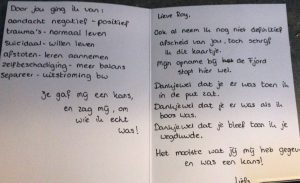 Door jou ging ik van:
aandacht negatief - positief
trauma's - normaal leven
Suïcidaal - willen leven
afstoten - leren aannemen
zelfbeschadiging - meer balans
separeer - uitstroming bw
Je gaf mij een kans,
en zag mij, om
wie ik echt
was!
Lieve Roy,
Ook al neem ik nog niet definitief
afscheid van jou, toch schrijf
ik dit kaartje.
Mijn opname bij de Fjord
stopt hier wel.
Dankjewel dat je er was toen ik
in de put zat.
Dankjewel dat je er was als ik
boos was.
Dankjewel dat je bleef toen ik je
wegduwde.
Het mooiste wat jij mij heb gegeven
en was een kans!
Liefs